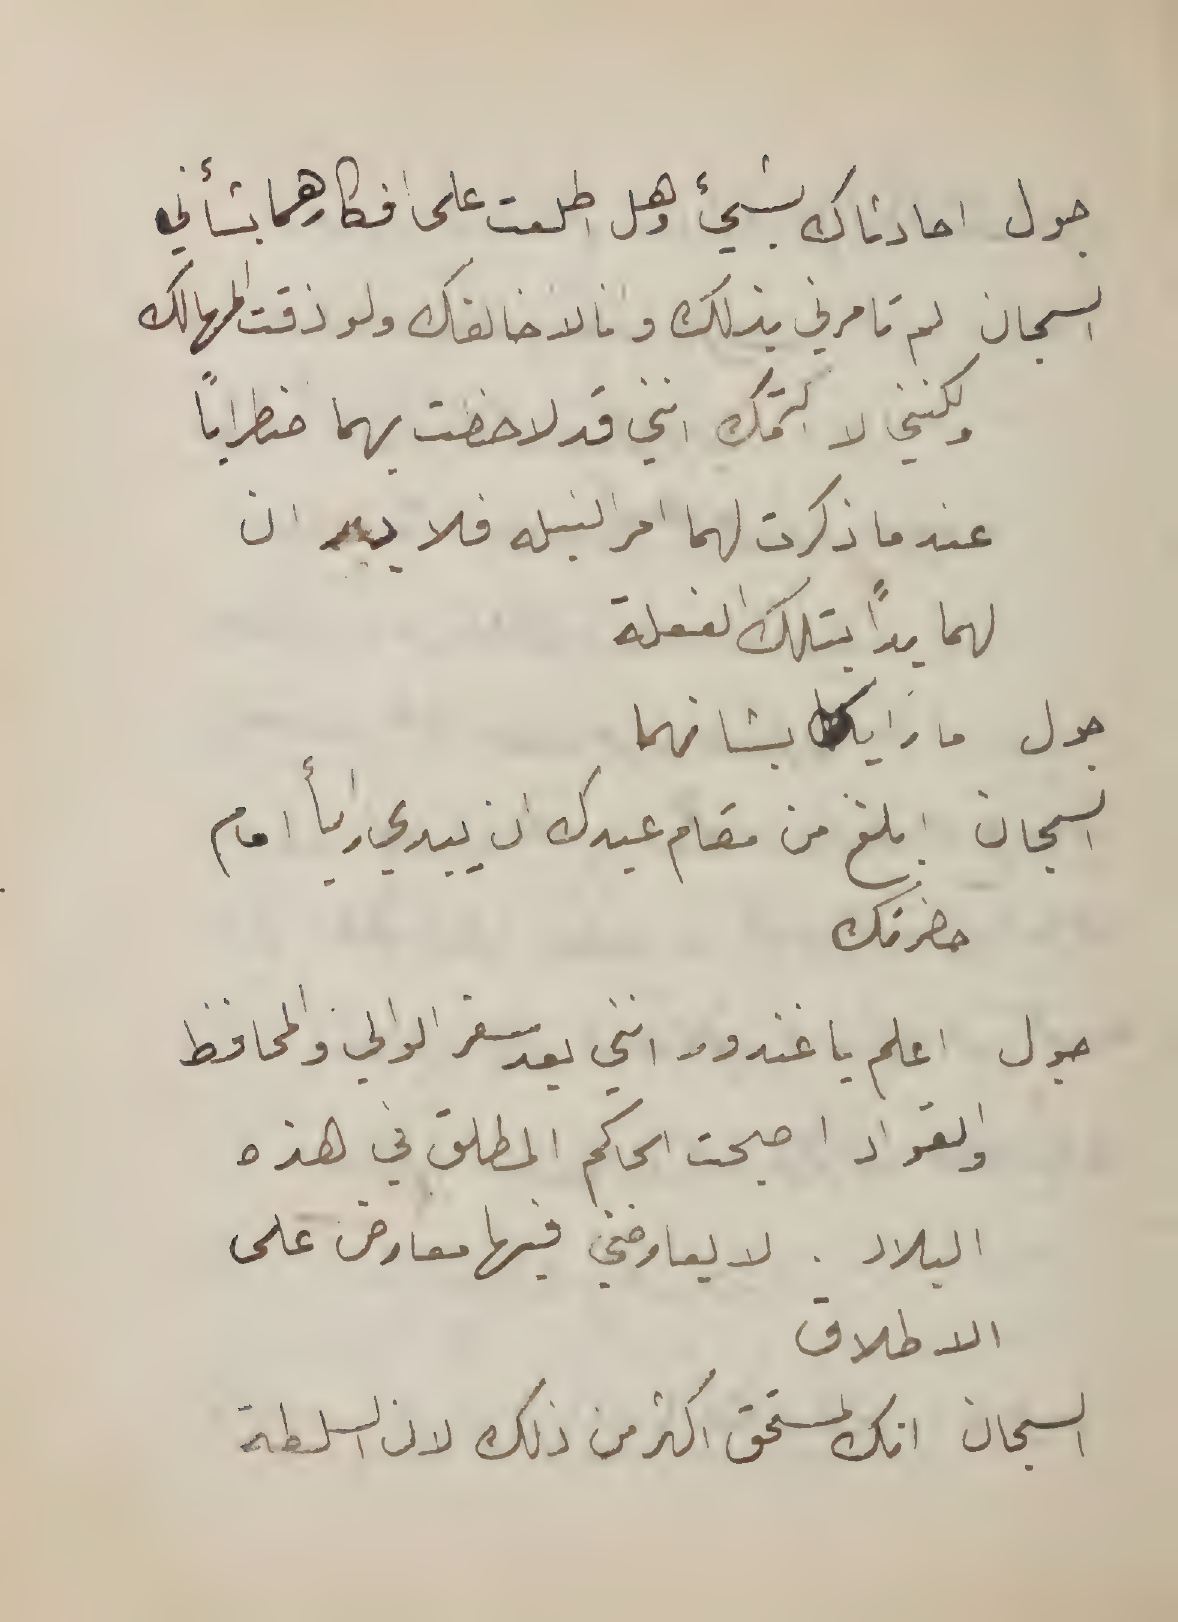 جول احادثاك بشيئ وهل اطلعت على افكارهما بشأني
السجان لم تامرني بذلك وانا لا اخالفك ولو ذقت المهالك
ولكنني لا اكتمك انني قد لاحضت بهما اضطراباً
عندما ذكرت لهما امر النبيله فلا ان
لهما يداً بتلك الفعلة
جول ما رايك بشانهما
السجان ايبلغ من مقام عبدك ان يبدي رايأ امام
حضرتك
جول اعلم يا غندور انني بعد سفر الوالي والمحافظ
والقواد اصبحت الحاكم المطلق في هذه
البلاد . لا يعارضني فيها معارض على
الاطلاق
السجان انك لمستحق اكثر من ذلك لان السلطة